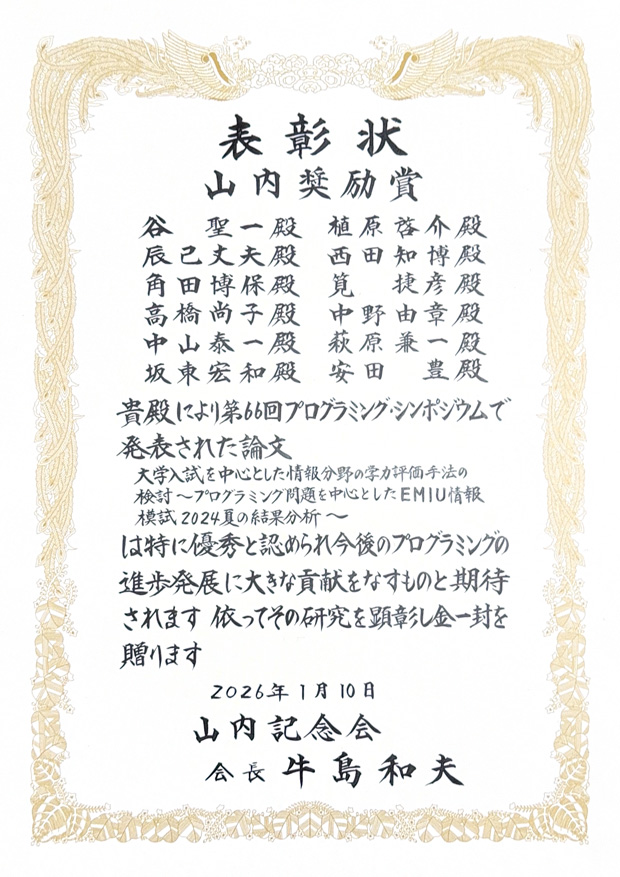 表彰状
山内奨励賞
谷 聖一殿 植原啓介殿
辰己丈夫殿 西田知博殿
角田博保殿 筧 捷彦殿
高橋尚子殿 中野由章殿
中山泰一殿 萩原兼一殿
坂東宏和殿 安田 豊殿
貴殿により第66回プログラミング・シンポジウムで
発表された論文
大学入試を中心とした情報分野の学力評価手法の
検討～プログラミング問題を中心としたEMIU情報
模試2024夏の結果分析～
は特に優秀と認められ今後のプログラミングの
進歩発展に大きな貢献をなすものと期待
されます 依ってその研究を顕彰し金一封を
贈ります
2026年1月10日
山内記念会
会長 牛島和夫